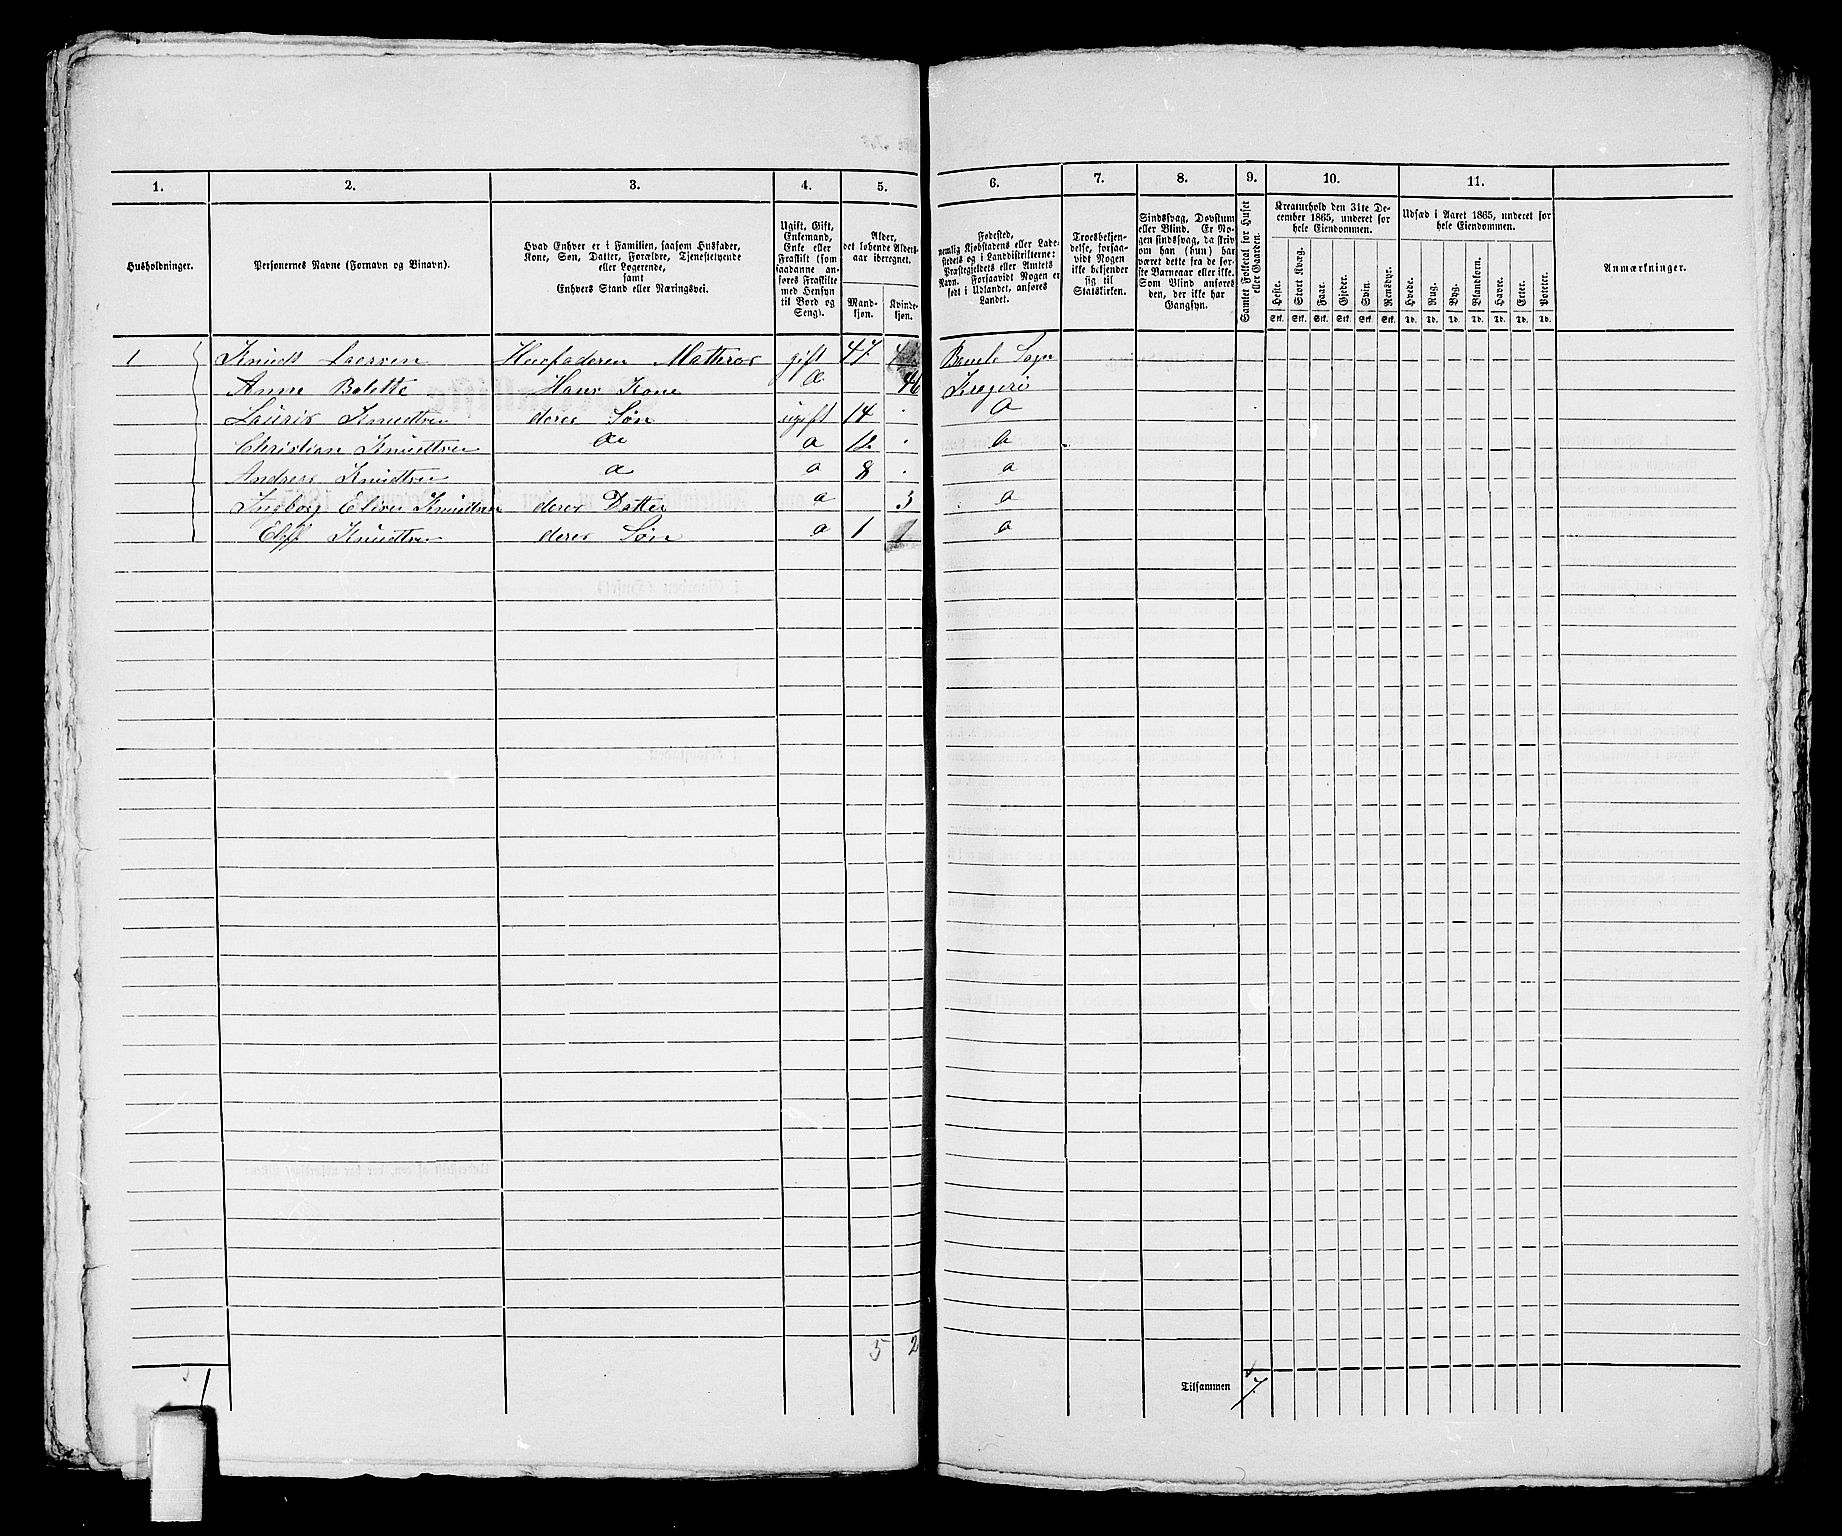 1. 2. 3. 4. 5. 6. 7. 8. 9. 10. 11.
Husholdninger.
Personernes Navne (Fornavn og Binavn).
Hvad Enhver er i Familien, saasom Husfader,
Kone, Søn, Datter, Forældre, Tjenestetyende
eller Logerende,
samt
Enhvers Stand eller Næringsvei.
Ugift, Gift,
Enkemand,
Enke eller
Fraskilt (som
saadanne an-
føres Fraskilte
med Hensyn
til Bord og
Seng).
Alder,
det løbende Alders-
aar iberegnet.
Mand-
kjøn.
Kvinde-
kjøn.
Fødested,
nemlig Kjøbstadens eller Lade-
stedets og i Landdistrikterne:
Præstegjeldets eller Amtets
Navn. Forsaavidt Nogen er
født i Udlandet, anføres
Landet.
Troesbekjen-
delse, forsaa-
vidt Nogen
ikke bekjender
sig til
Statskirken.
Sindssvag, Døvstum
eller Blind. Er No-
gen sindssvag, da skriv
om han (hun) har
været dette fra de før-
ste Barneaar eller ikke.
Som Blind anføres
den, der ikke har
Gangsyn.
Samlet Folketal for Huset
eller Gaarden.
Kreaturhold den 31te De-
cember 1865, underet for
hele Eiendommen.
Heste. Stort Kvæg. Faar. Gjeder. Svin. Rensdyr.
Stk. Stk. Stk. Stk. Stk. Stk.
Udsæd i Aaret 1865, underet for
hele Eiendommen.
Hvede. Rug. Byg. Blandkorn. Havre. Erter. Poteter.
Td. Td. Td. Td. Td. Td. Td.
Anmærkninger.
1 Knudt Laersen Husfaderen Matros gift 47 Bamle Sogn
Anne Bolette Hans Kone 46 Kragerø
Lauris Knudtsen deres Søn ugift 14
Christian Knudtsen 12
Andreas Knudtsen 8
Ingborg Knudtsen deres Datter 3
Knudtsen deres Søn 1 1
5 2
Tilsammen 7
1